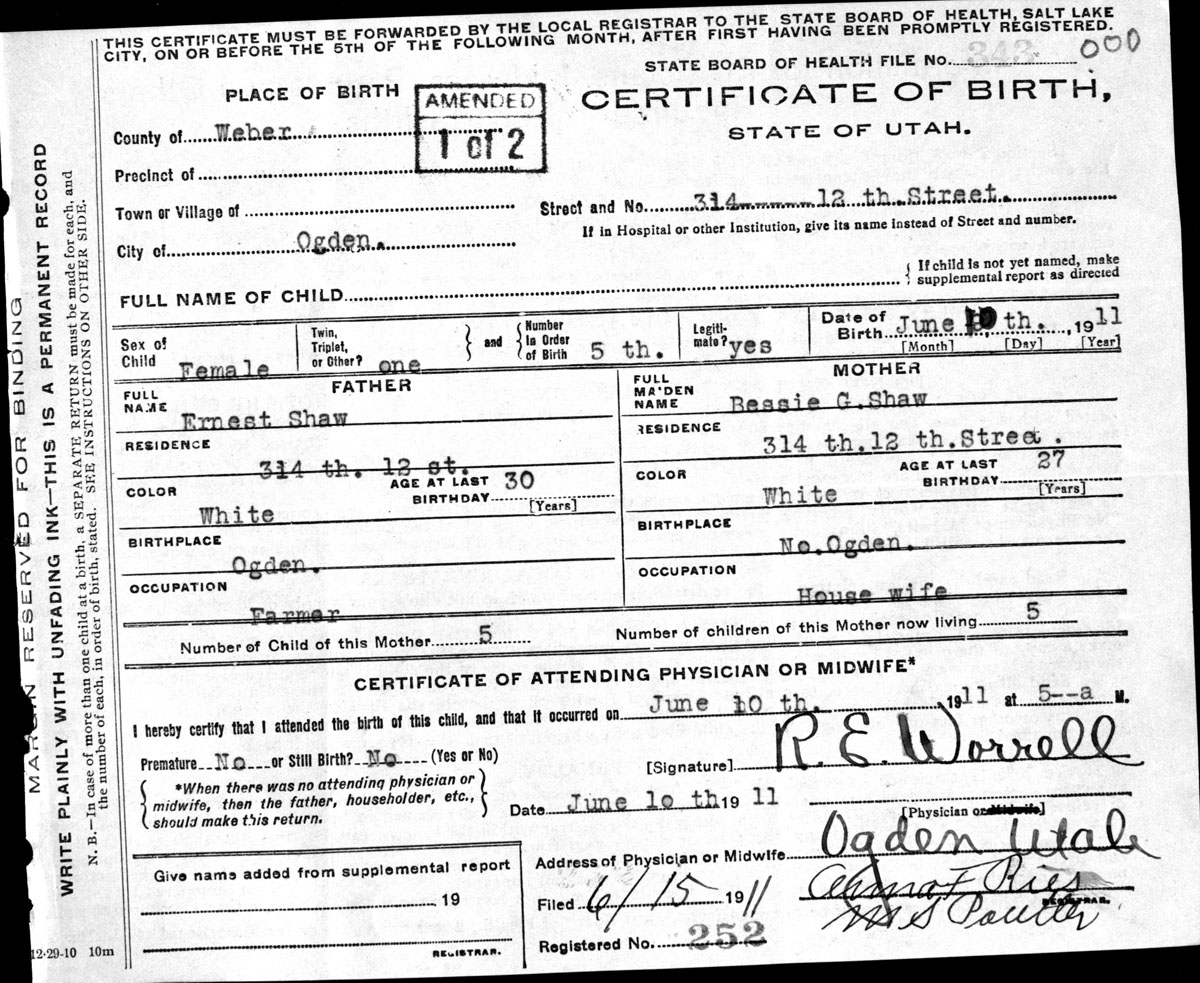 THIS CERTIFICATE MUST BE FORWARDED BY THE LOCAL REGISTRAR TO THE STATE BOARD OF HEALTH, SALT LAKE
CITY, ON OR BEFORE THE 5TH OF THE FOLLOWING MONTH, AFTER FIRST HAVING BEEN PROMPTLY REGISTERED.
STATE BOARD OF HEALTH FILE No. 343 000
PLACE OF BIRTH
AMENDED
1 of 2
CERTIFICATE OF BIRTH,
STATE OF UTAH.
County of Weber
Precinct of
Town or Village of
Street and No. 314 ------ 12 th.Street.
If in Hospital or other Institution, give its name instead of Street and number.
City of Ogden.
FULL NAME OF CHILD
If child is not yet named, make
supplemental report as directed
Sex of
Child Female
Twin,
Triplet,
or Other? one
and
Number
In Order
of Birth 5 th.
Legiti-
mate? yes
Date of
Birth June 10 th. , 1911
[Month] [Day] [Year]
FATHER
FULL
NAME
Ernest Shaw
RESIDENCE
314 th. 12 st.
COLOR
White
AGE AT LAST
BIRTHDAY 30
[Years]
BIRTHPLACE
Ogden.
OCCUPATION
Farmer
MOTHER
FULL
MAIDEN
NAME
Bessie G.Shaw
RESIDENCE
314 th.12 th.Street.
COLOR
White
AGE AT LAST
BIRTHDAY 27
[Years]
BIRTHPLACE
No.Ogden.
OCCUPATION
House wife
Number of Child of this Mother 5
Number of children of this Mother now living 5
CERTIFICATE OF ATTENDING PHYSICIAN OR MIDWIFE*
I hereby certify that I attended the birth of this child, and that it occurred on June 10 th. , 1911 at 5--a M.
Premature No or Still Birth? No (Yes or No)
[Signature] R. E. Worrell
*When there was no attending physician or
midwife, then the father, householder, etc.,
should make this return.
Date June 10 th 19 11
[Physician or Midwife]
Address of Physician or Midwife Ogden Utah
Give name added from supplemental report
19
REGISTRAR.
Filed 6/15 1911
REGISTRAR.
Registered No. 252
MARGIN RESERVED FOR BINDING
WRITE PLAINLY WITH UNFADING INK—THIS IS A PERMANENT RECORD
N. B.—In case of more than one child at a birth, a SEPARATE RETURN must be made for each, and
the number of each, in order of birth, stated. SEE INSTRUCTIONS ON OTHER SIDE.
12-29-10 10m